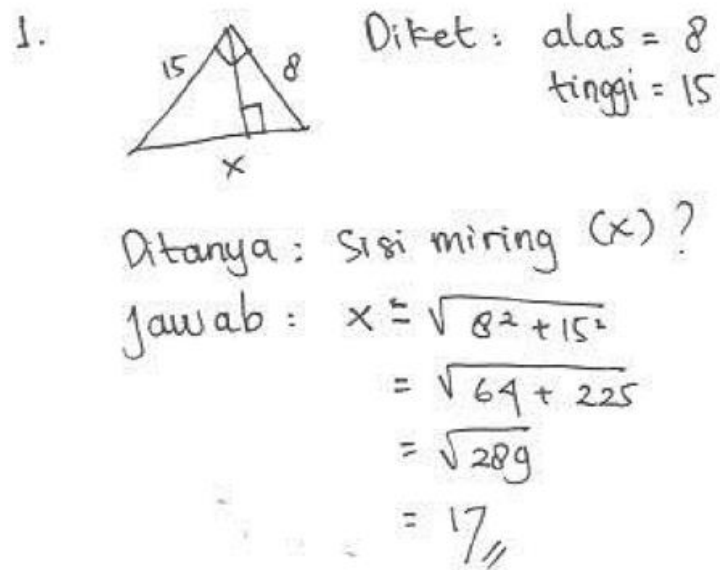 1.
15
8
x
Diket : alas = 8
tinggi = 15
Ditanya : Sisi miring (x) ?
Jawab : x = √8² + 15²
= √64 + 225
= √289
= 17